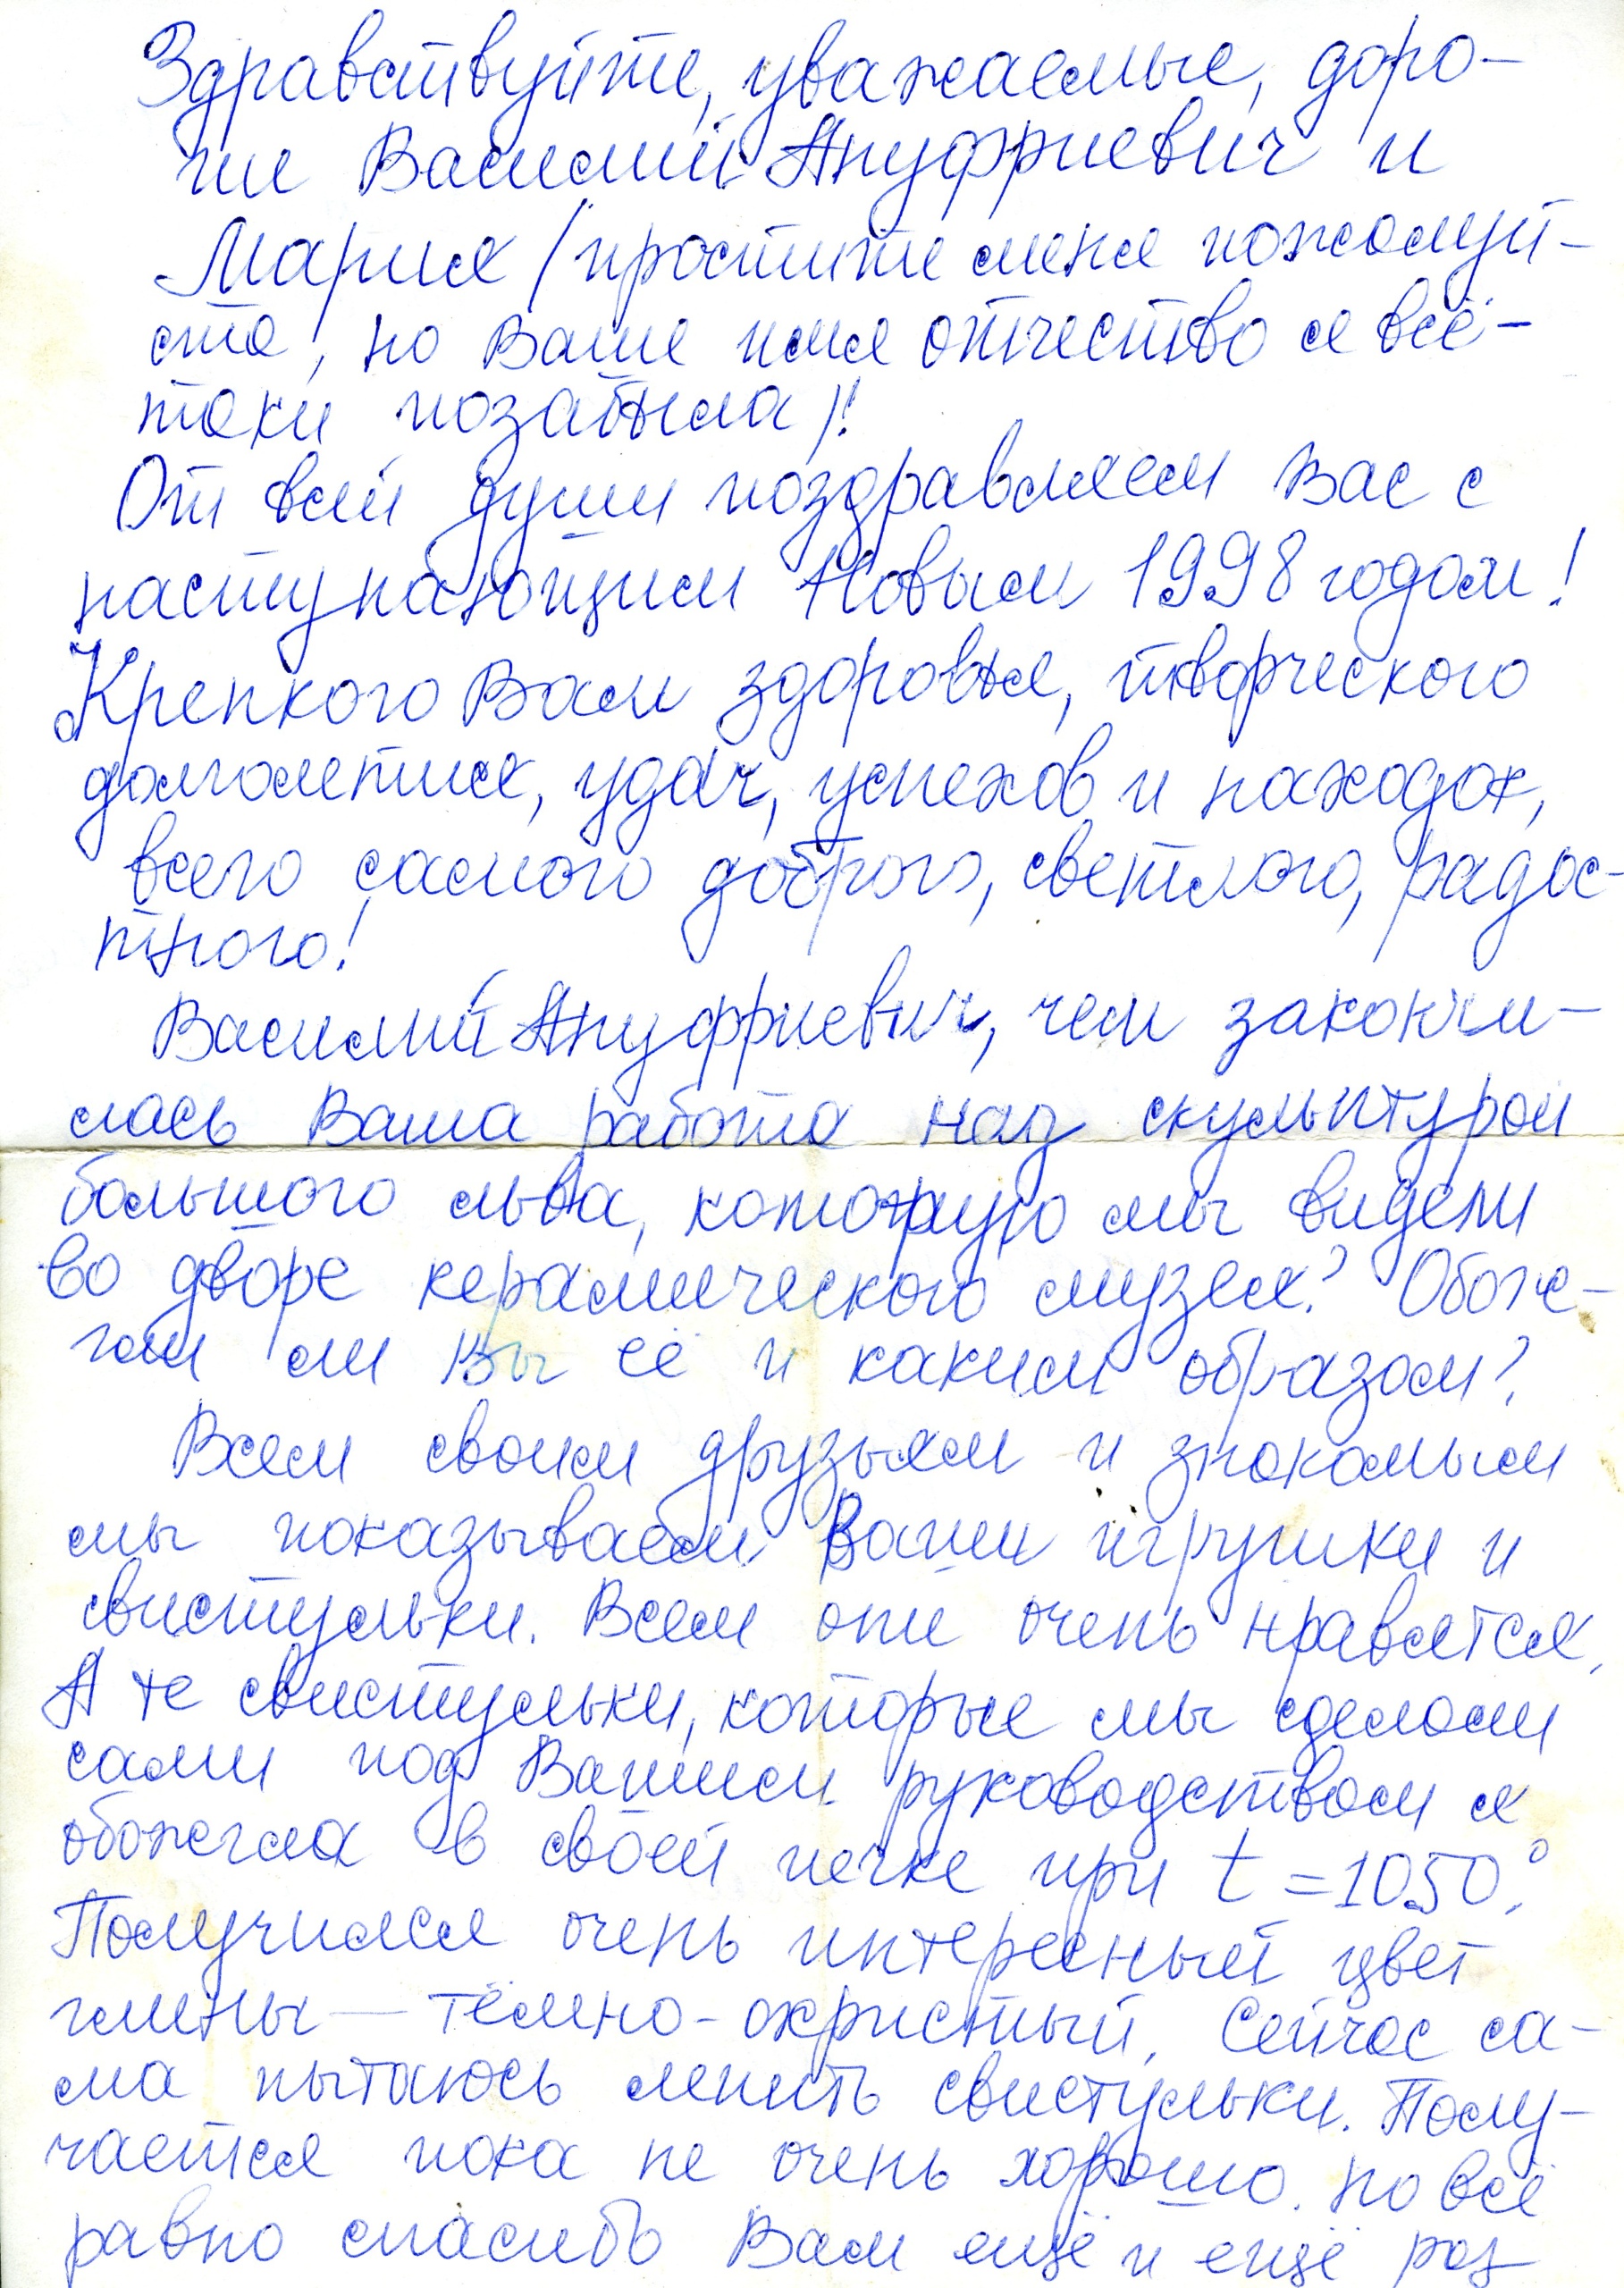 Здравствуйте, уважаемые, доро-
гие Василий Ануфриевич и
Мария (простите меня пожалуй-
ста, но Ваше имя отчество я всё-
таки позабыла)!
От всей души поздравляем Вас с
наступающим Новым 1998 годом!
Крепкого Вам здоровья, творческого
долголетия, удач, успехов и находок,
всего самого доброго, светлого, радос-
тного!
Василий Ануфриевич, чем закончи-
лась Ваша работа над скульптурой
большого льва, которую мы видели
во дворе керамического музея? Обож-
гли ли Вы её и каким образом?
Всем своим друзьям и знакомым
мы показываем Ваши игрушки и
свистульки. Всем они очень нравятся.
А те свистульки, которые мы сделали
сами под Вашим руководством я
обожгла в своей печке при t = 1050°.
Получился очень интересный цвет
глины — тёмно-охристый. Сейчас са-
ма пытаюсь лепить свистульки. Полу-
чается пока не очень хорошо. Но всё
равно спасибо Вам ещё и ещё раз